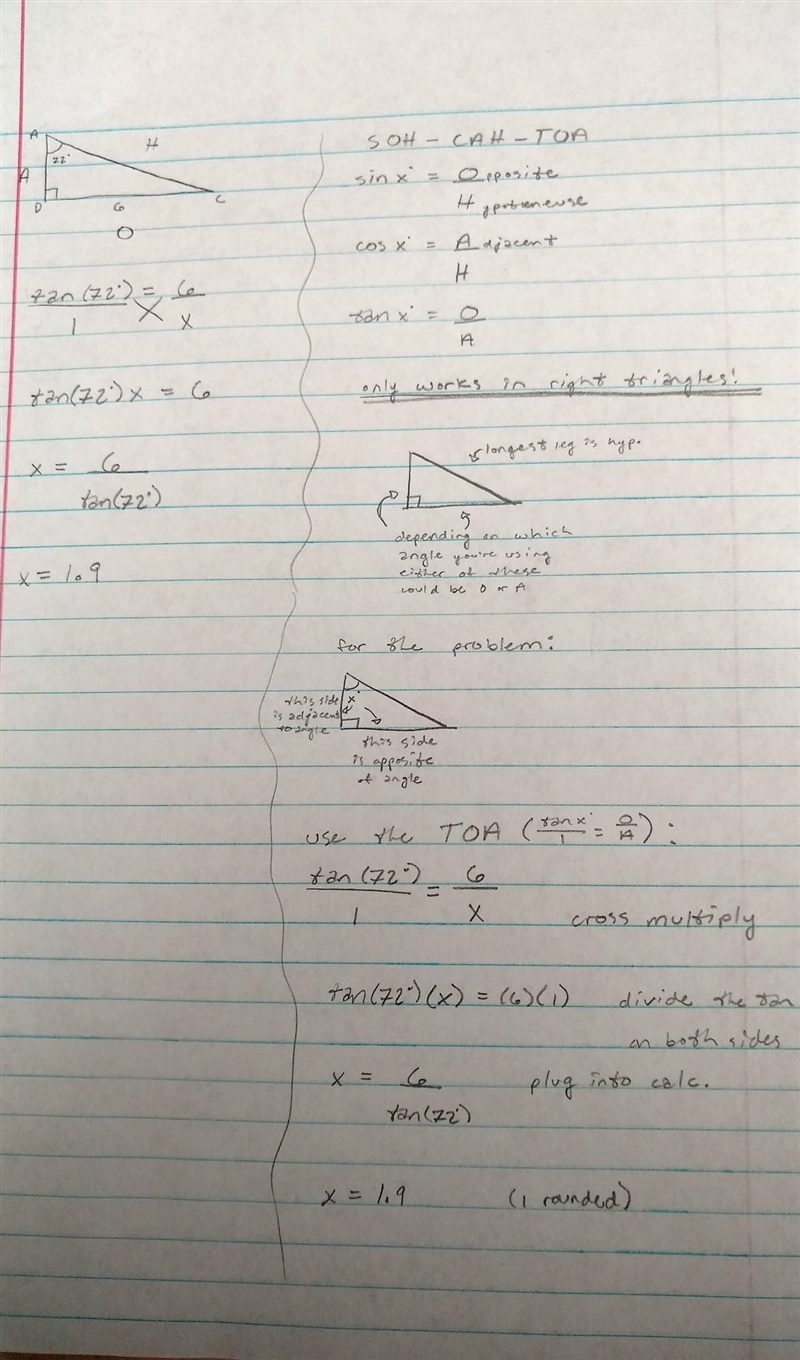 A
H
72°
A
D
6
C
O
tan(72°) = 6
1 x
tan(72°)x = 6
x = 6
tan(72°)
x = 1.9
SOH - CAH - TOA
sin x° = Opposite
Hypoteneuse
cos x° = Adjacent
H
tan x° = O
A
only works in right triangles!
longest leg is hyp.
depending on which
angle you're using
either of these
could be O or A
for the problem:
x°
this side
is adjacent
to angle
this side
is opposite
of angle
use the TOA (tan x°/1 = O/A):
tan(72°) = 6
1 x
cross multiply
tan(72°)(x) = (6)(1) divide the tan
on both sides
x = 6 plug into calc.
tan(72°)
x = 1.9 (I rounded)